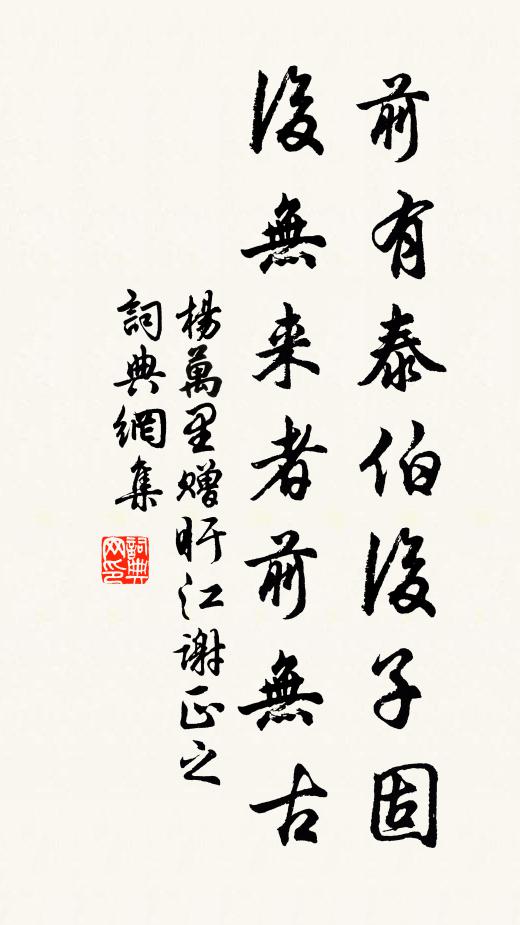 前有泰伯後子固
後無来者前無古
楊萬里贈盱江謝正之
詞典網集
詞典网印